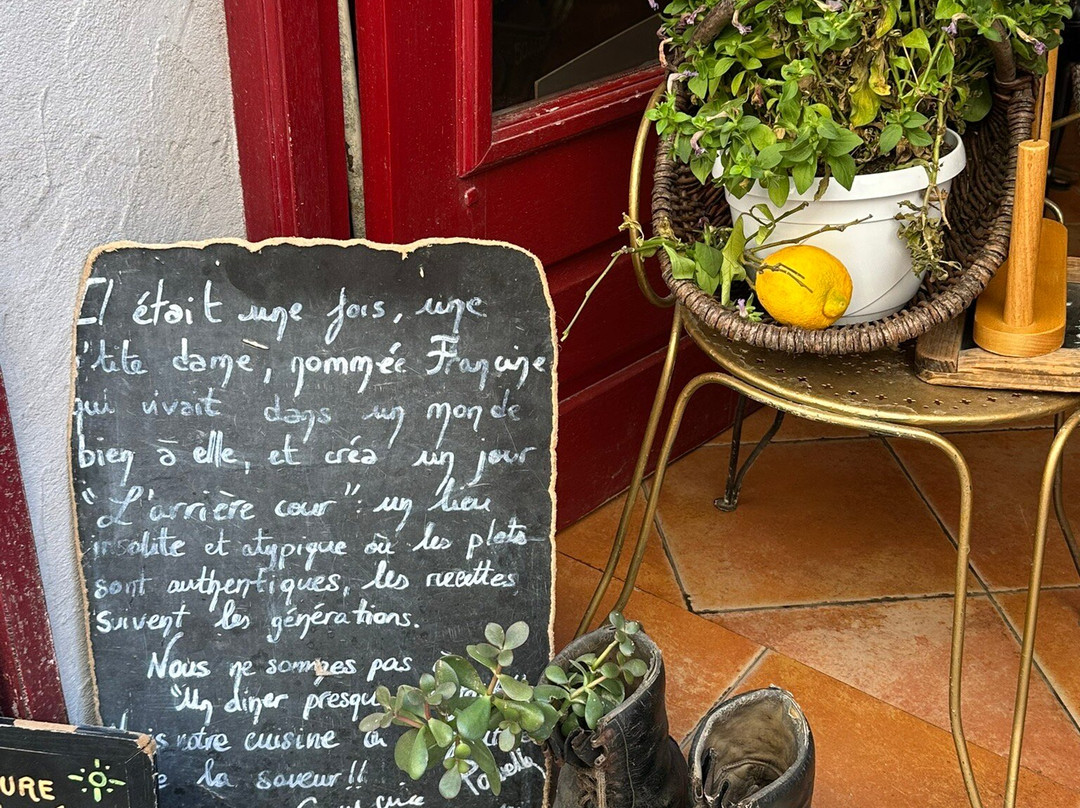 Il était une fois, une
p'tite dame, nommée Francine
qui vivait dans un monde
bien à elle, et créa un jour
"L'arrière cour": un lieu
insolite et atypique où les plats
sont authentiques, les recettes
suivent les générations.
Nous ne sommes pas
"Un diner presqu
notre cuisine
la saveur!!
URE